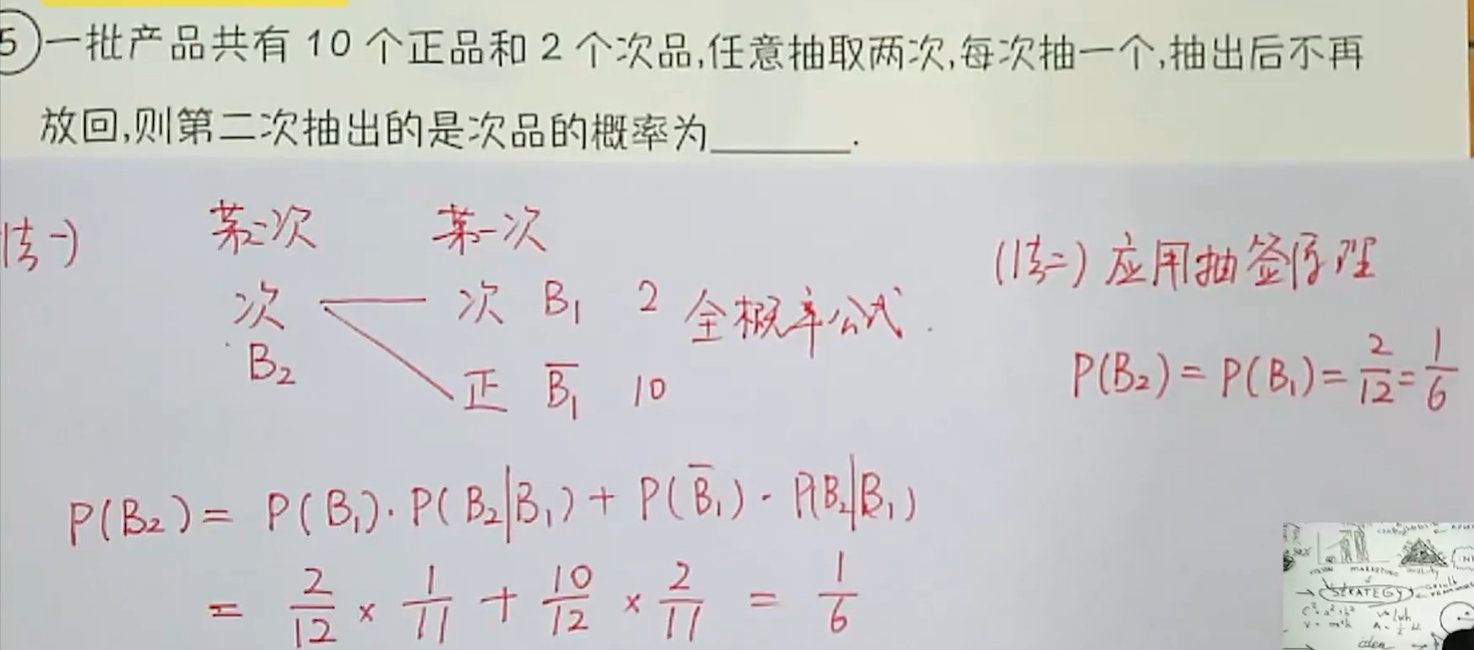 5 一批产品共有 10 个正品和 2 个次品,任意抽取两次,每次抽一个,抽出后不再
放回,则第二次抽出的是次品的概率为______.
法一) 第二次 第一次
次 次 B₁ 2 全概率公式.
B₂ 正 B̅₁ 10
P(B₂) = P(B₁)·P(B₂|B₁) + P(B̅₁)·P(B₂|B₁)
= 2/12 × 1/11 + 10/12 × 2/11 = 1/6
(法二) 应用抽签原理
P(B₂) = P(B₁) = 2/12 = 1/6
MARKETING
STRATEGY